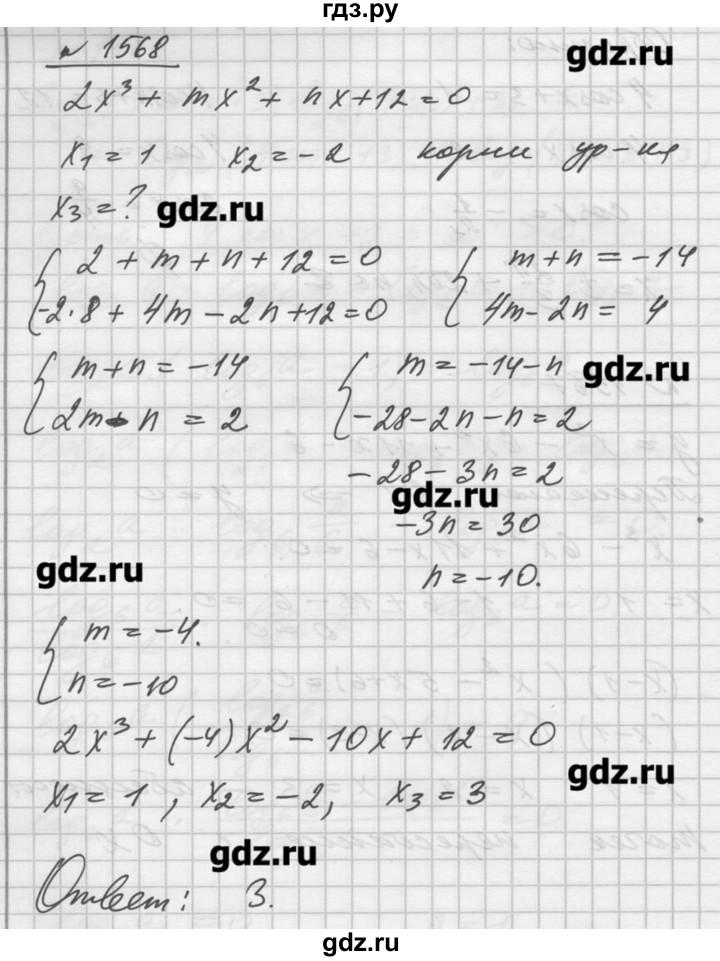 гдз.ру
№ 1568
gdz.ru
2x³ + mx² + nx + 12 = 0
x₁ = 1 x₂ = -2 корни ур-ия
x₃ = ? gdz.ru
{ 2 + m + n + 12 = 0 { m + n = -14
-2·8 + 4m - 2n + 12 = 0 4m - 2n = 4
{ m + n = -14 { m = -14 - n gdz.ru
2m - n = 2 -28 - 2n - n = 2
-28 - 3n = 2
gdz.ru
-3n = 30
gdz.ru
n = -10.
{ m = -4.
n = -10
2x³ + (-4)x² - 10x + 12 = 0
gdz.ru
x₁ = 1, x₂ = -2, x₃ = 3
gdz.ru
Ответ: 3.
gdz.ru